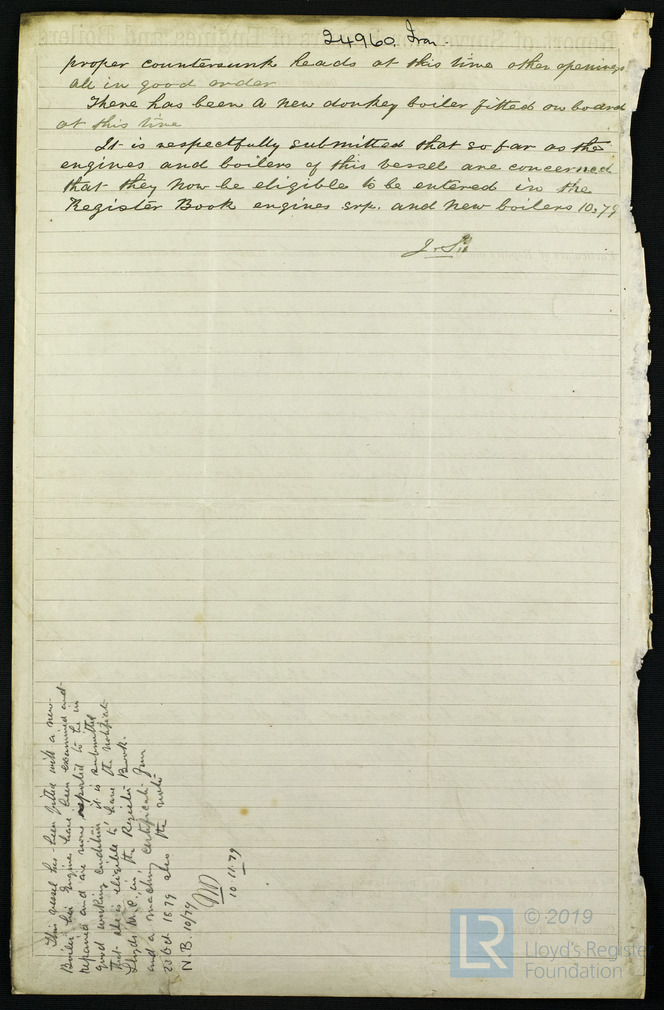 24960 Iron.
proper countersunk heads at this time other openings
all in good order
There has been a new donkey boiler fitted on board
at this time
It is respectfully submitted that so far as the
engines and boilers of this vessel are concerned
that they now be eligible to be entered in the
Register Book engines srp. and New boilers 10,79
This vessel has been fitted with a new
Boiler her Engines have been examined and
repaired and are now reported to be in
good working condition it is submitted
that she is eligible to have the notificat-
Lloyds M.C. in the Register Book
and a machy certificate from
23 Oct 1879 also the note
N.B. 10/79
10.11.79
© 2019
Lloyd's Register
Foundation
LR